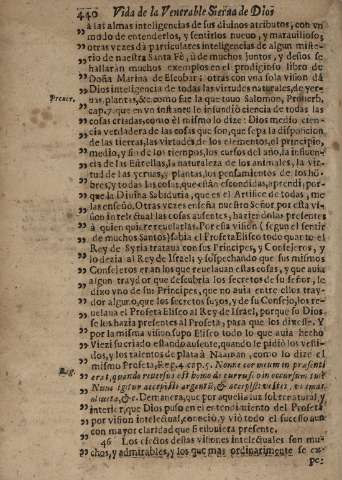 440 Vida de la Venerable Sierva de Dios
„ à las almas inteligencias de sus divinos atributos, con vn
„ modo de entenderlos, y sentirlos nuevo, y marauilloso;
„ otras vezes dà particulares inteligencias de algun miste-
„ rio de nuestra Santa Fè, ù de muchos juntos, y destos se
„ hallaràn muchos exemplos en el prodigioso libro de
„ Doña Marina de Escobar: otras con vna sola vision dà
„ Dios inteligencia de todas las virtudes naturales, de yer-
Prover. „ uas, plantas, &c. como fue la que tuuo Salomon, Prouerb.
„ cap. 7. que en vn instante le infundiò ciencia de todas las
„ cosas criadas, como èl mismo lo dize: Diome Dios cien-
„ cia verdadera de las cosas que son, que sepa la disposicion
„ de las tierras, las virtudes de los elementos, el principio,
„ medio, y fin de los tiempos, los cursos del año, la influen-
„ cia de las Estrellas, la naturaleza de los animales, la vir-
„ tud de las yeruas, y plantas, los pensamientos de los hõ-
„ bres, y todas las cosas, que estàn escondidas, aprendì; por-
„ que la Diuina Sabiduria, que es el Artifice de todas, me
„ las enseñò. Otras vezes enseña nuestro Señor por esta vi-
„ sion intelectual las cosas ausentes, haziendolas presentes
„ à quien quiere reuelarlas. Por esta vision (segun el sentir
„ de muchos Santos) sabia el Profeta Eliseo todo quanto el
„ Rey de Syria trataua con sus Principes, y Consejeros, y
„ lo dezia al Rey de Israel; y sospechando que sus mismos
„ Consejeros eran los que reuelauan estas cosas, y que auia
„ algun traydor que descubria los secretos de su señor, le
„ dixo vno de sus Principes, que no auia entre ellos tray-
„ dor alguno, que los secretos suyos, y de su Consejo, los re-
„ uelaua el Profeta Eliseo al Rey de Israel, porque su Dios
„ se los hazia presentes al Profeta, para que los dixesse. Y
„ por la misma vision supo Eliseo todo lo que auia hecho
„ Giezi su criado estando ausente, quando le pidiò los vesti-
„ dos, y los talentos de plata à Naaman, como lo dize el
Reg. „ mismo Profeta, Reg. 4. cap. 5. Nonne cor meum in præsenti
„ erat, quando reuersus est homo de curru suo in occursum tui?
„ Nunc igitur accepisti argentũ, & accepisti vestes, vt emas
„ oliueta, &c. De manera, que por aquella luz sobrenatural, y
„ interior, que Dios puso en el entendimiento del Profeta
„ por vision intelectual, conociò, y viò todo el sucesso aun
„ con mayor claridad que si estuviera presente.
„ 46 Los efectos destas visiones intelectuales son mu-
„ chos, y admirables, y los que mas ordinariamente se ex-
pe-